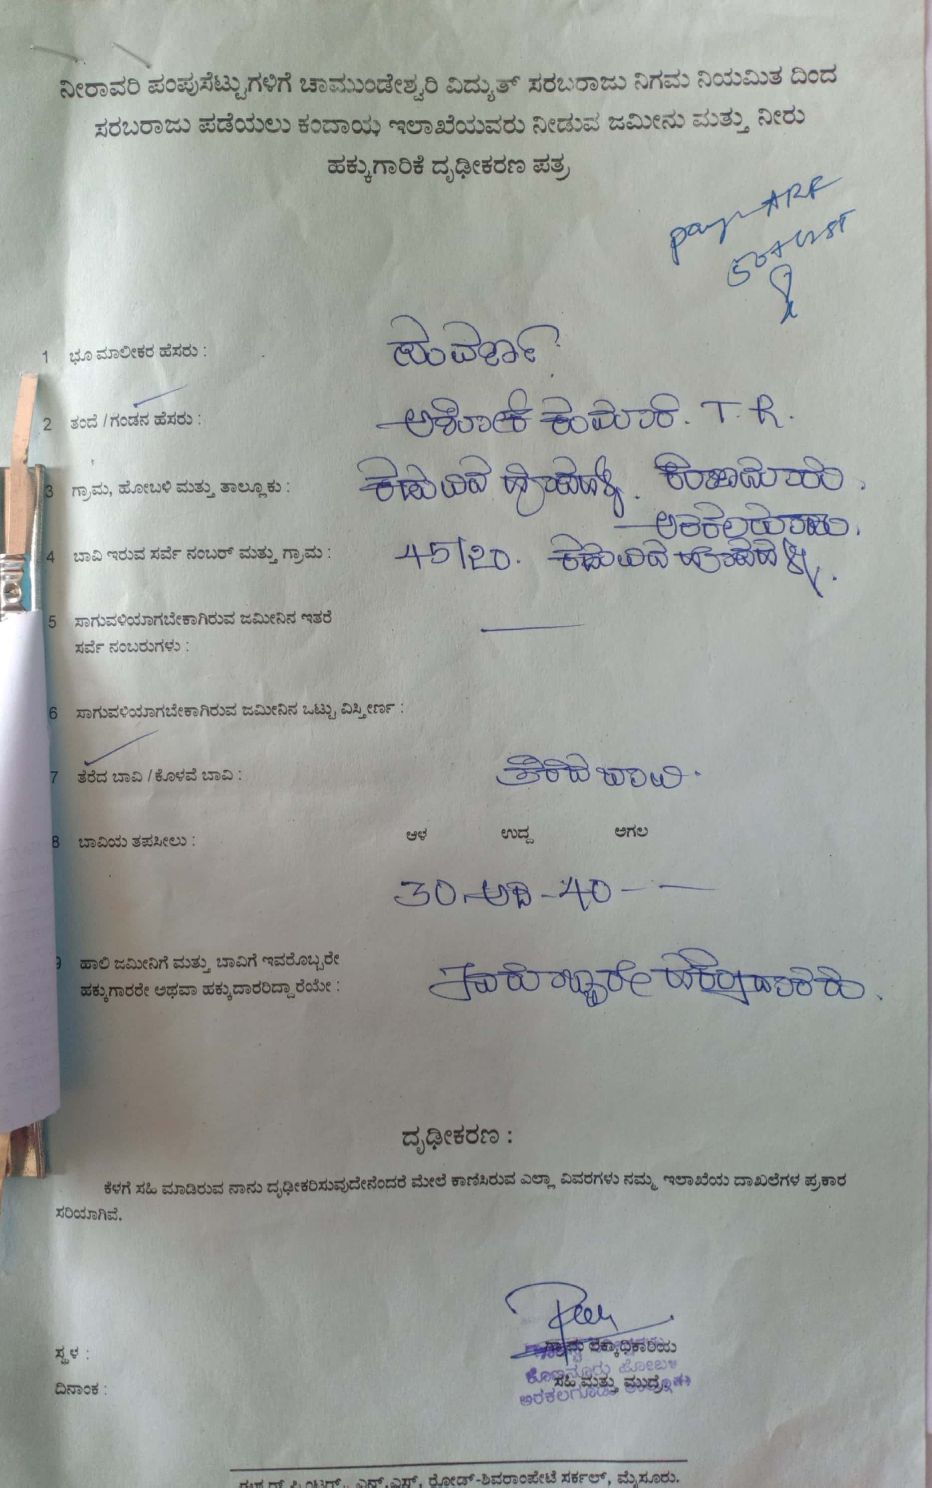 ನೀರಾವರಿ ಪಂಪುಸೆಟ್ಟುಗಳಿಗೆ ಚಾಮುಂಡೇಶ್ವರಿ ವಿದ್ಯುತ್ ಸರಬರಾಜು ನಿಗಮ ನಿಯಮಿತ ದಿಂದ
ಸರಬರಾಜು ಪಡೆಯಲು ಕಂದಾಯ ಇಲಾಖೆಯವರು ನೀಡುವ ಜಮೀನು ಮತ್ತು ನೀರು
ಹಕ್ಕುಗಾರಿಕೆ ದೃಢೀಕರಣ ಪತ್ರ
1 ಭೂ ಮಾಲೀಕರ ಹೆಸರು :
2 ತಂದೆ / ಗಂಡನ ಹೆಸರು : ಅಶೋಕ ಕುಮಾರ. T. R.
3 ಗ್ರಾಮ, ಹೋಬಳಿ ಮತ್ತು ತಾಲ್ಲೂಕು :
ಅರಕಲಗೂಡು.
4 ಬಾವಿ ಇರುವ ಸರ್ವೆ ನಂಬರ್ ಮತ್ತು ಗ್ರಾಮ : 45/20.
5 ಸಾಗುವಳಿಯಾಗಬೇಕಾಗಿರುವ ಜಮೀನಿನ ಇತರೆ
ಸರ್ವೆ ನಂಬರುಗಳು :
6 ಸಾಗುವಳಿಯಾಗಬೇಕಾಗಿರುವ ಜಮೀನಿನ ಒಟ್ಟು ವಿಸ್ತೀರ್ಣ :
7 ತೆರೆದ ಬಾವಿ / ಕೊಳವೆ ಬಾವಿ : ತೆರೆದ ಬಾವಿ.
8 ಬಾವಿಯ ತಪಸೀಲು : ಆಳ ಉದ್ದ ಅಗಲ
30 ಅಡಿ - 40 -
9 ಹಾಲಿ ಜಮೀನಿಗೆ ಮತ್ತು ಬಾವಿಗೆ ಇವರೊಬ್ಬರೇ
ಹಕ್ಕುಗಾರರೇ ಅಥವಾ ಹಕ್ಕುದಾರರಿದ್ದಾರೆಯೇ : ಇವರೊಬ್ಬರೇ ಹಕ್ಕುದಾರರು.
ದೃಢೀಕರಣ :
ಕೆಳಗೆ ಸಹಿ ಮಾಡಿರುವ ನಾನು ದೃಢೀಕರಿಸುವುದೇನೆಂದರೆ ಮೇಲೆ ಕಾಣಿಸಿರುವ ಎಲ್ಲಾ ವಿವರಗಳು ನಮ್ಮ ಇಲಾಖೆಯ ದಾಖಲೆಗಳ ಪ್ರಕಾರ
ಸರಿಯಾಗಿವೆ.
ಸ್ಥಳ :
ದಿನಾಂಕ : ಸಹಿ ಮತ್ತು ಮುದ್ರೆ
ಎನ್.ಎಸ್. ರೋಡ್-ಶಿವರಾಂಪೇಟೆ ಸರ್ಕಲ್, ಮೈಸೂರು.